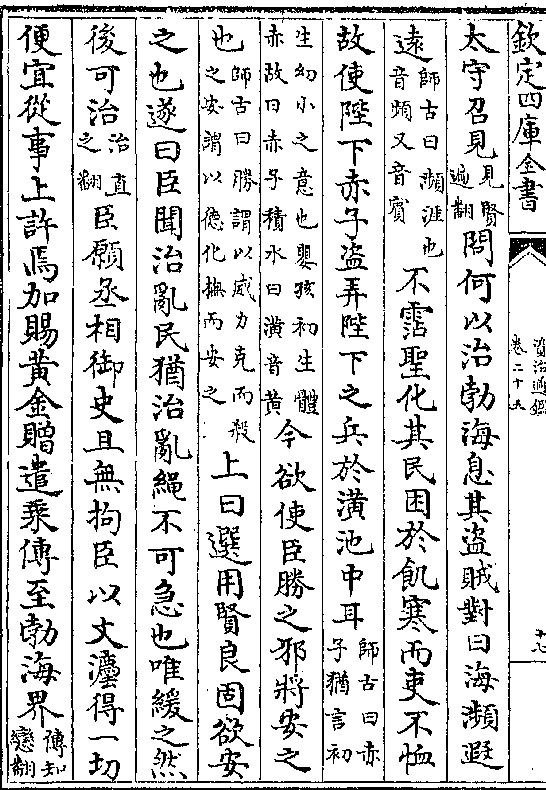 欽定四庫全書 資治通鑑 卷二十五 十七
太守召見見賢遍翻問何以治勃海息其盜賊對曰海瀕遐
遠師古曰瀕涯也音頻又音賓不霑聖化其民困於飢寒而吏不恤
故使陛下赤子盜弄陛下之兵於潢池中耳師古曰赤子猶言初
生幼小之意也嬰孩初生體赤故曰赤子積水曰潢音黄今欲使臣勝之邪將安之
也師古曰勝謂以威力克而殺之安謂以德化撫而安之上曰選用賢良固欲安
之也遂曰臣聞治亂民猶治亂繩不可急也唯緩之然
後可治治直之翻臣願丞相御史且無拘臣以文灋得一切
便宜從事上許焉加賜黃金贈遣乘傳至勃海界傳知戀翻